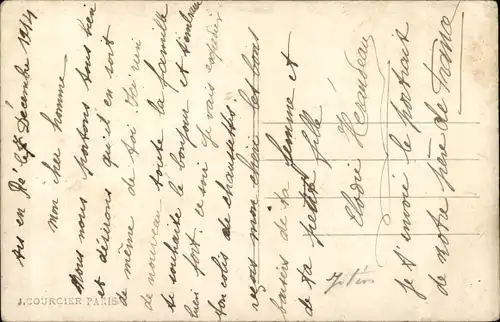 Ars en Ré le 7 Décembre 1914
Mon cher homme
Nous nous portons tous bien
et désirons qu'il en soit
de même de toi. Ici rien
de nouveau toute la famille
te souhaite le bonjour et t'embrasse
bien fort. ce soir je vais expédier
ton colis de chaussettes.
reçois mon chéri les bons
baisers de ta femme et
de ta petite fille
Elodie Heraudeau
je t'envoie le portrait
de notre père de France
J. COURCIER PARIS